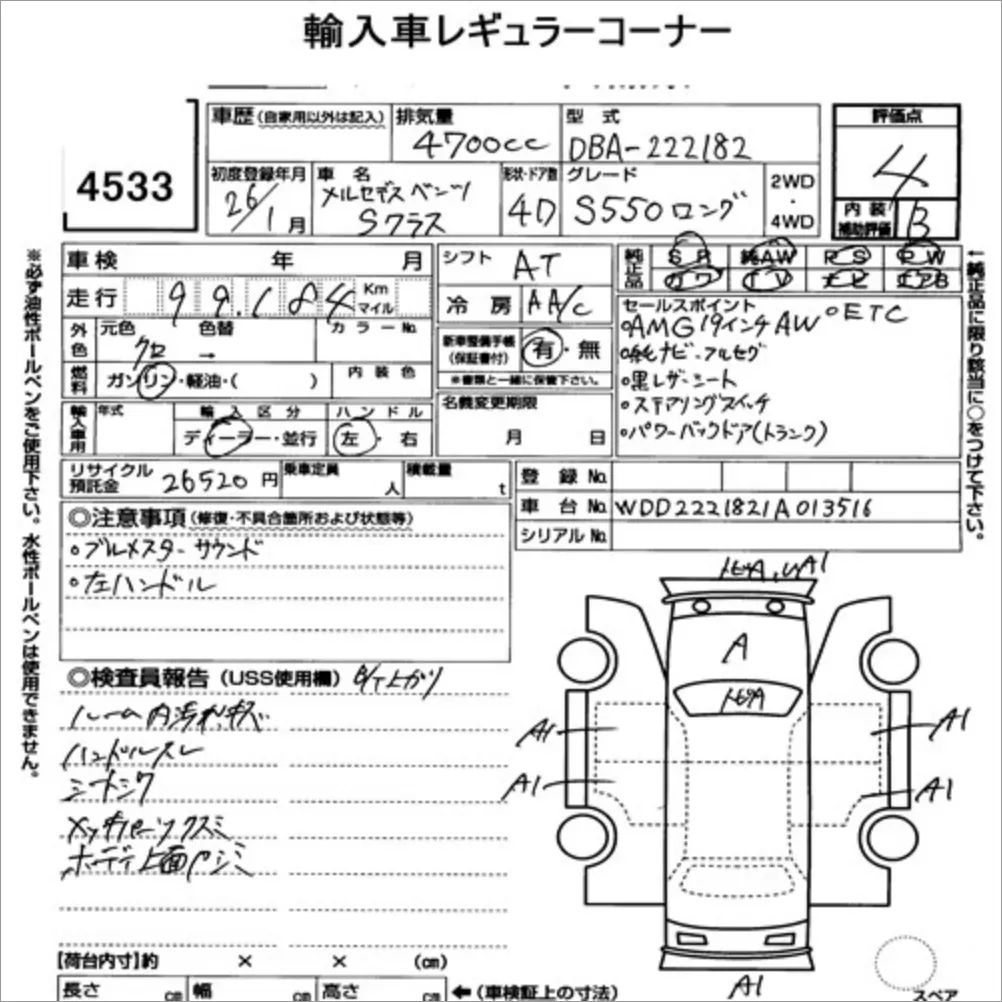 輸入車レギュラーコーナー
4533
車歴(自家用以外は記入)
排気量
4700cc
型 式
DBA-222182
評価点
4
初度登録年月
26/1月
車 名
メルセデスベンツ
Sクラス
形状・ドア数
4D
グレード
S550ロング
2WD
・
4WD
内 装
補助評価
B
車検 年 月
走行 99,184 Km
マイル
シフト AT
冷 房 AA/C
純正品
SR 純AW RS PW
カワ TV ナビ エアB
外色
元色 色替 カラーNo.
クロ →
燃料
ガソリン・軽油・( )
内 装 色
新車整備手帳
(保証書付)
有・無
※書類と一緒に保管下さい。
セールスポイント
◦AMG19インチAW ◦ETC
◦純ナビ・フルセグ
◦黒レザーシート
◦ステアリングスイッチ
◦パワーバックドア(トランク)
輸入車用
年式
輸 入 区 分
ディーラー・並行
ハ ン ド ル
左・右
名義変更期限
月 日
リサイクル
預託金
26520円
乗車定員
人
積載量
t
登 録 No.
車 台 No. WDD2221821A013516
シリアル No.
◎注意事項(修復・不具合箇所および状態等)
◦ブルメスターサウンド
◦左ハンドル
◎検査員報告(USS使用欄)
ハンドルスレ
シートシワ
A
A1
A1
A1
A1
A1
【荷台内寸】約 × × (cm)
長さ cm 幅 cm 高さ cm ←(車検証上の寸法)
スペア
※必ず油性ボールペンをご使用下さい。水性ボールペンは使用できません。
←純正品に限り該当に○をつけて下さい。